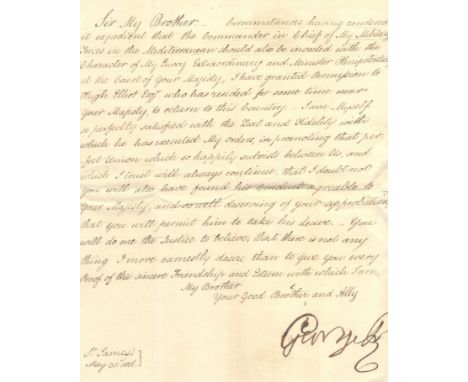 Sir My Brother – Circumstances having rendered
it expedient that the Commander in Chief of My Military
Forces in the Mediterranean should also be invested with the
Character of My Envoy Extraordinary and Minister Plenipotentiary
at the Court of Your Majesty, I have granted Permission to
Hugh Elliot Esqr. who has resided for some time near
Your Majesty, to return to this Country – I am Myself
so perfectly satisfied with the Zeal and Fidelity with
which he has executed My orders, in promoting that per-
fect Union which so happily subsists between Us, and
which I trust will always continue, that I doubt not
You will also have found his conduct agreable to
Your Majesty, and so well deserving of your approbation
that You will permit him to take his Leave. – You
will do me the Justice to believe, that there is not any
thing I more earnestly desire than to give You every
Proof of the sincere Friendship and Esteem with which I am,
My Brother
Your Good Brother and Ally
George R
St. James's
May